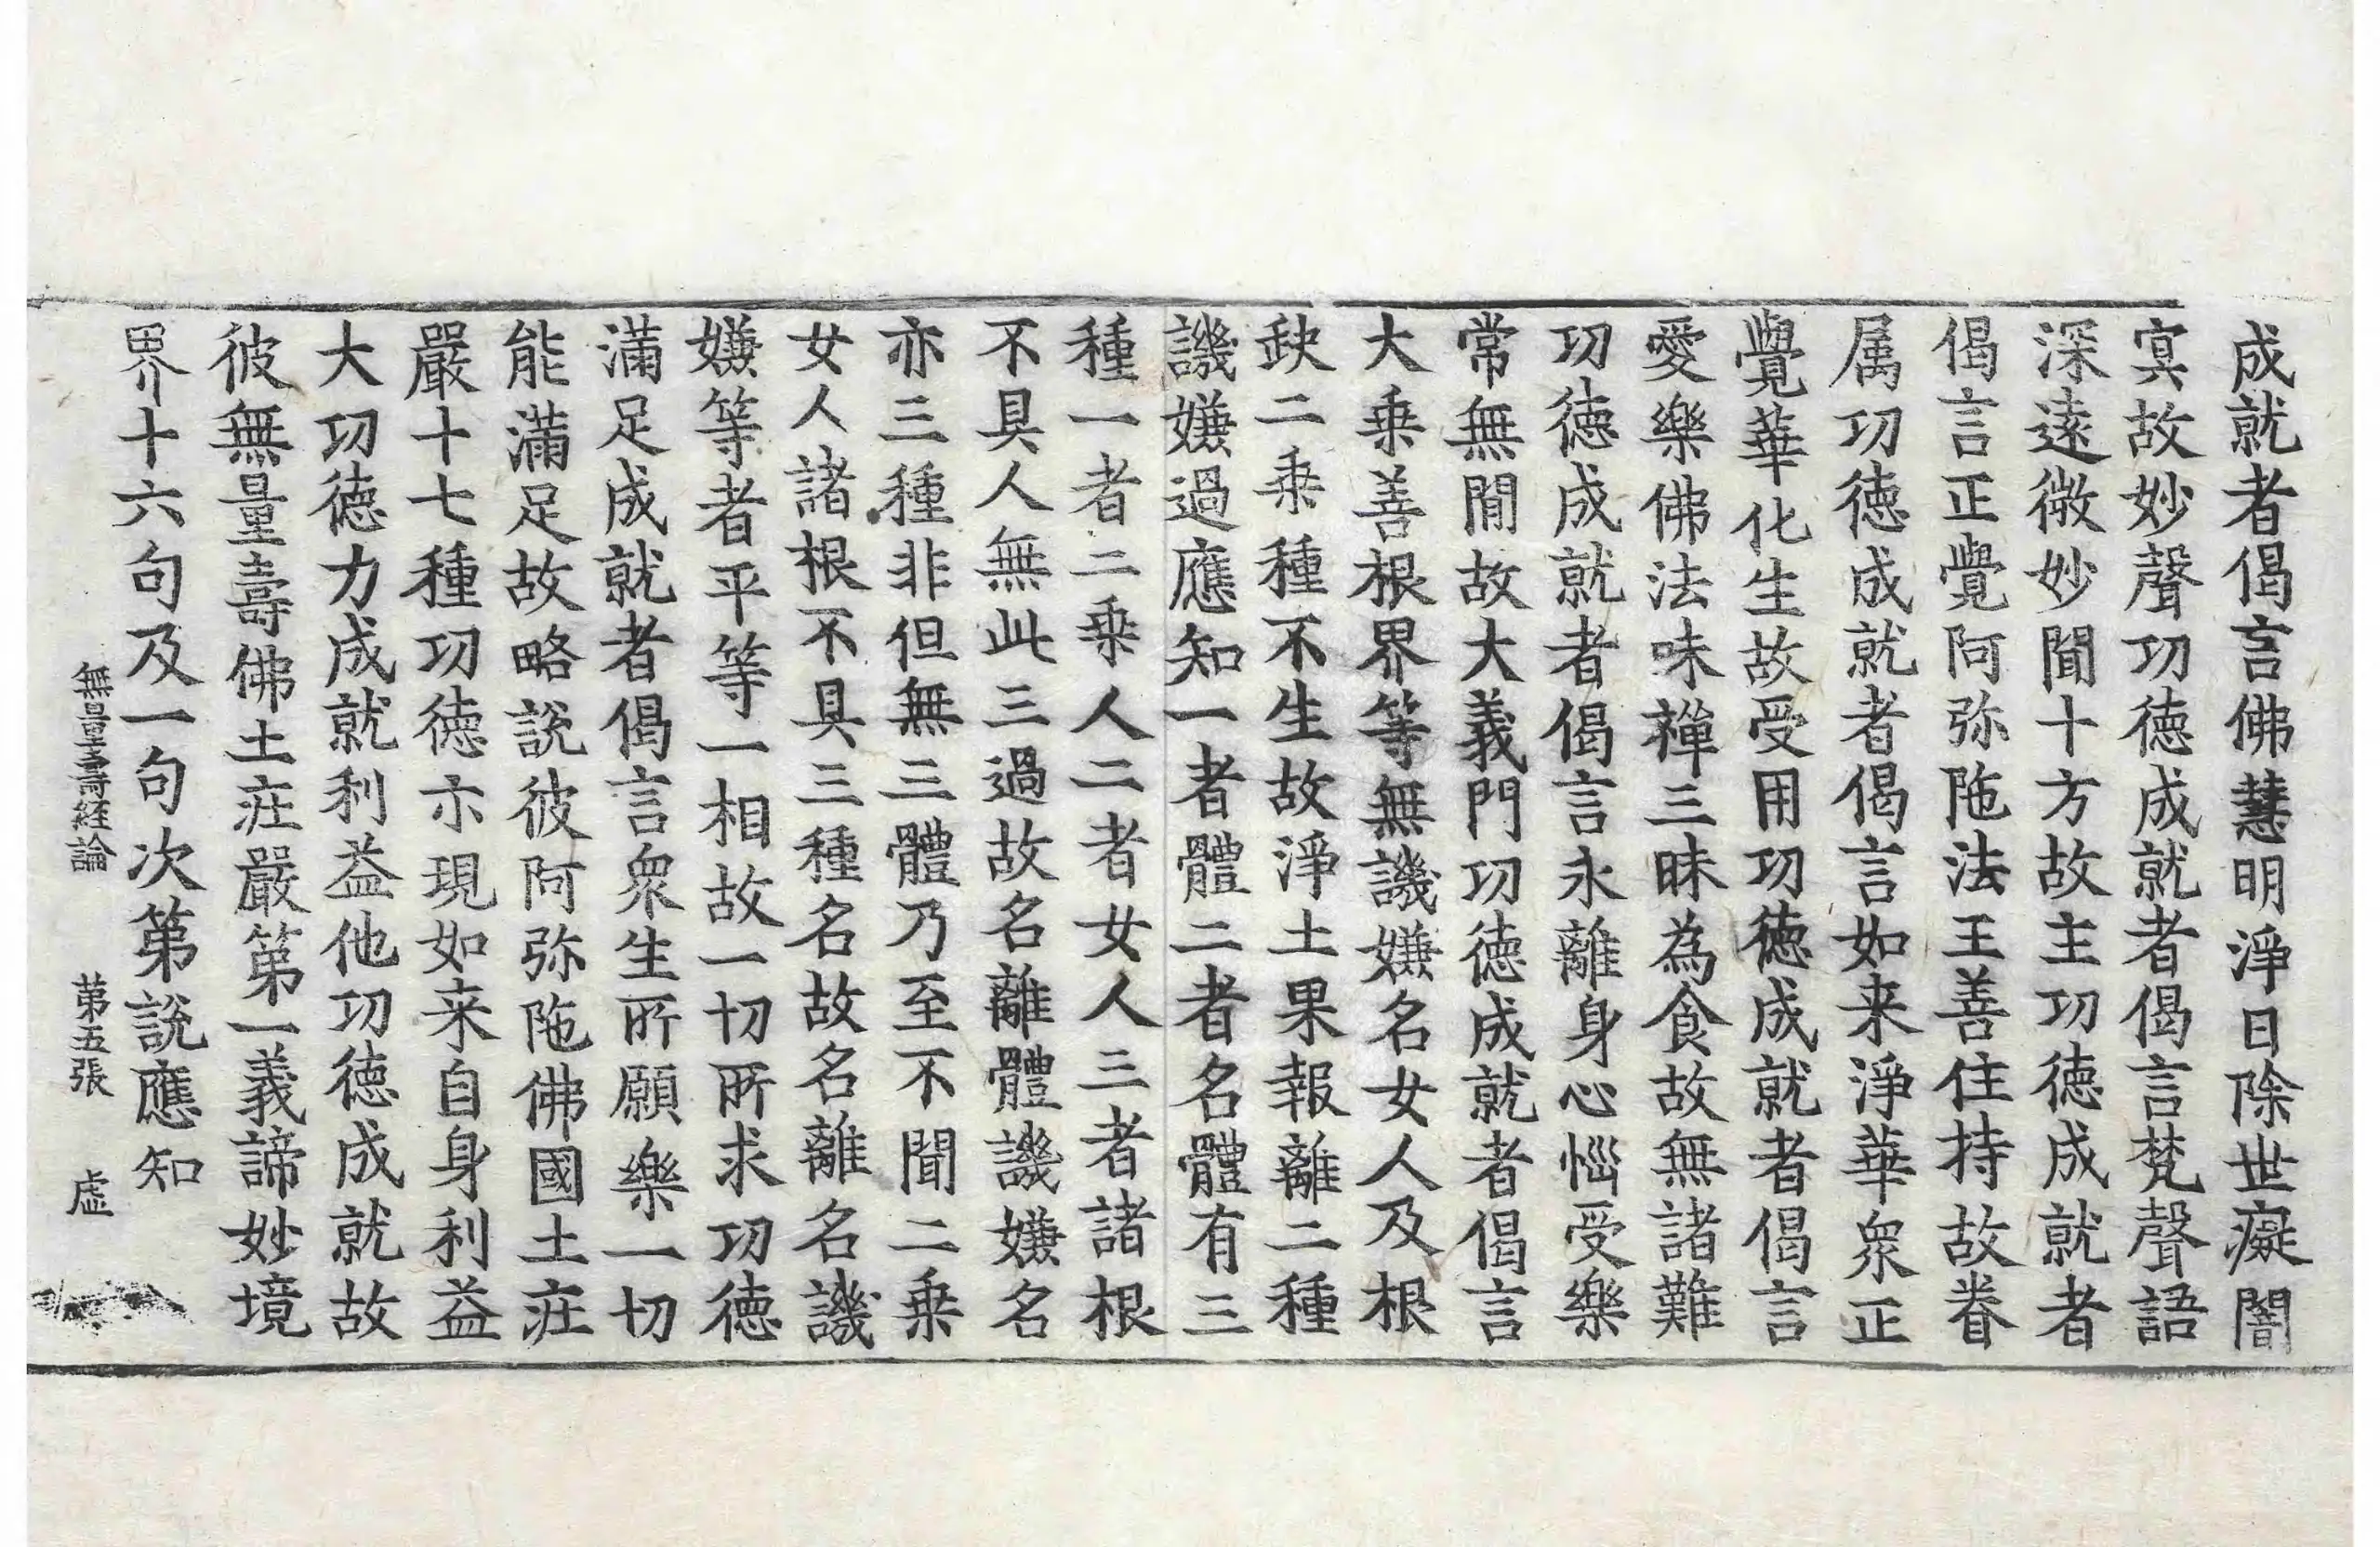 成就者偈言佛慧明淨日除世癡闇
㝠故妙聲功徳成就者偈言梵聲語
深遠微妙聞十方故主功徳成就者
偈言正覺阿弥陁法王善住持故眷
属功徳成就者偈言如来淨華衆正
覺華化生故受用功徳成就者偈言
愛樂佛法味禪三昧為食故無諸難
功徳成就者偈言永離身心惱受樂
常無閒故大義門功徳成就者偈言
大乗善根界等無譏嫌名女人及根
缺二乗種不生故淨土果報離二種
譏嫌過應知一者體二者名體有三
種一者二乗人二者女人三者諸根
不具人無此三過故名離體譏嫌名
亦三種非但無三體乃至不聞二乗
女人諸根不具三種名故名離名譏
嫌等者平等一相故一切所求功徳
滿足成就者偈言衆生所願樂一切
能滿足故略説彼阿弥陁佛國土莊
嚴十七種功徳示現如来自身利益
大功徳力成就利益他功徳成就故
彼無量壽佛土莊嚴第一義諦妙境
界十六句及一句次第説應知
無量壽経論 第五張 虚